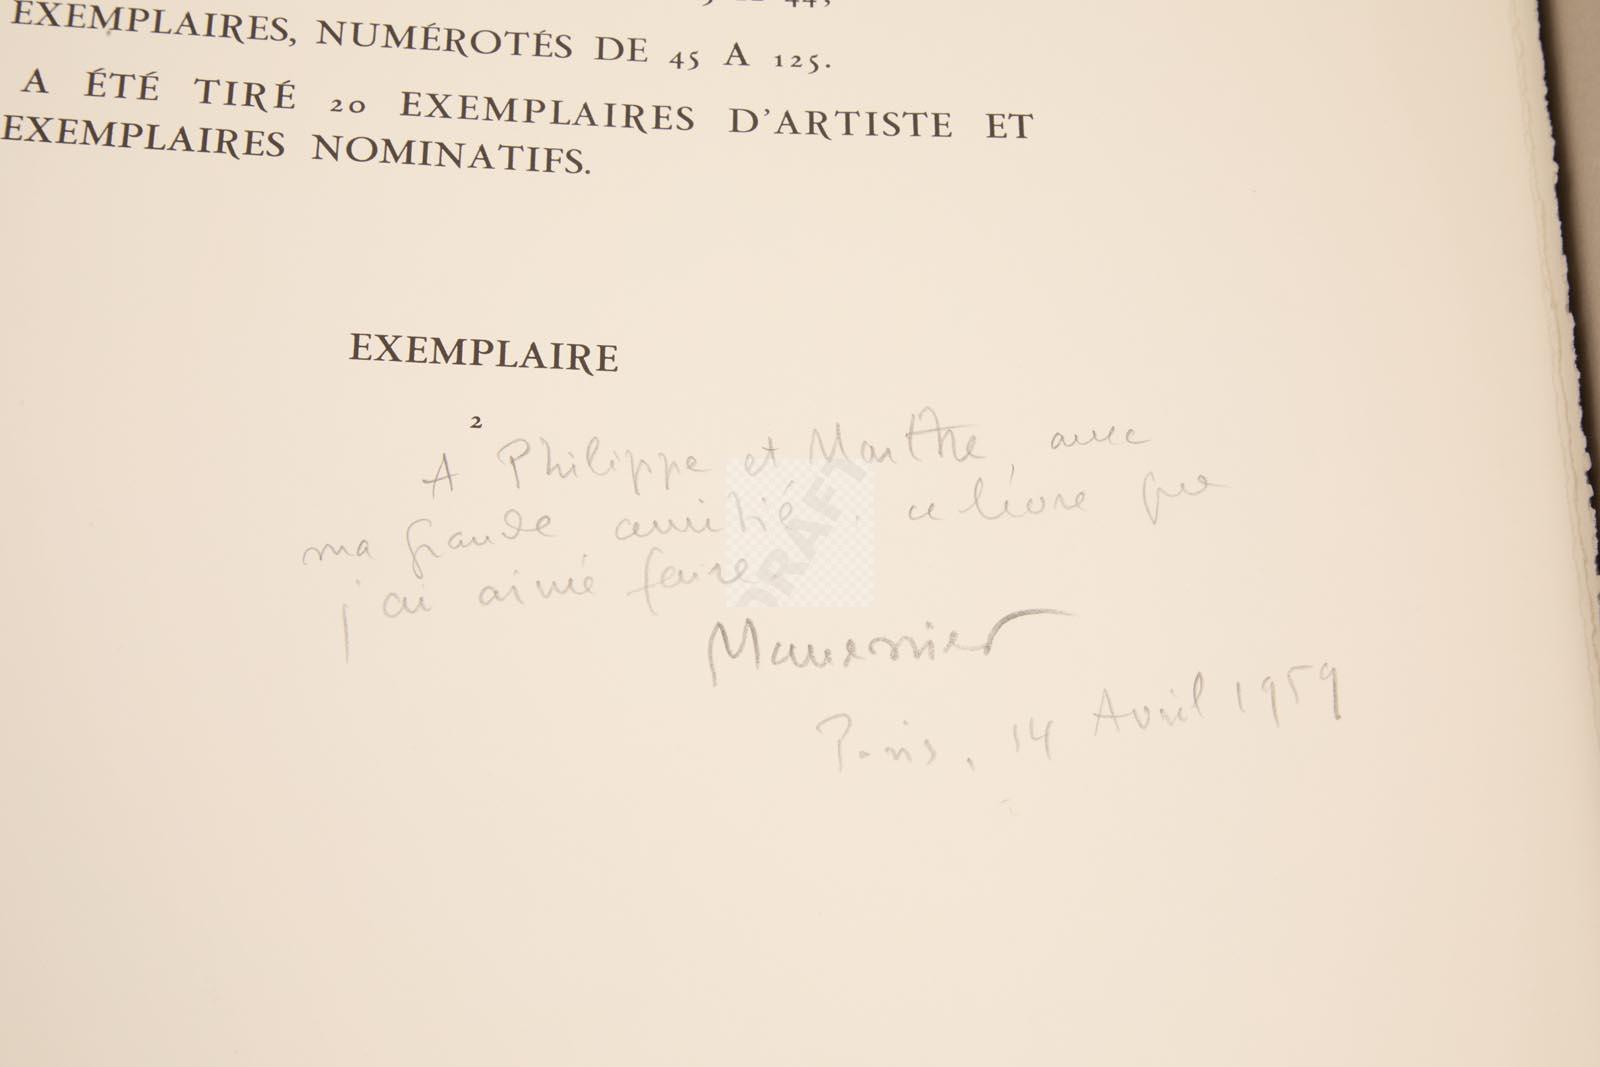 EXEMPLAIRES, NUMÉROTÉS DE 45 A 125.
A ÉTÉ TIRÉ 20 EXEMPLAIRES D'ARTISTE ET
EXEMPLAIRES NOMINATIFS.
EXEMPLAIRE
2
A Philippe et Marthe, avec
ma grande amitié, ce livre que
j'ai aimé faire.
DRAFT
Manessier
Paris, 14 Avril 1959